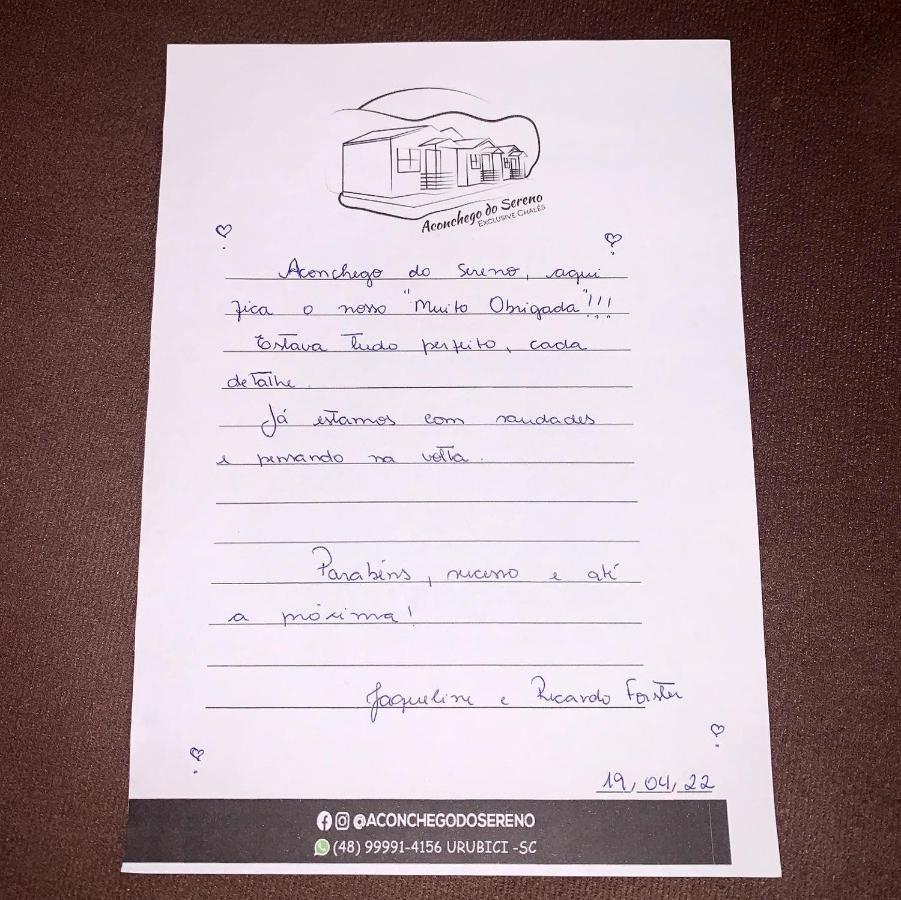 Aconchego do Sereno
EXCLUSIVE CHALÉS
Aconchego do Sereno, aqui
fica o nosso "Muito Obrigada"!!!
Estava tudo perfeito, cada
detalhe.
Já estamos com saudades
e pensando na volta.
Parabéns, sucesso e até
a próxima!
Jaqueline e Ricardo Forster
19/04/22
@ACONCHEGODOSERENO
(48) 99991-4156 URUBICI -SC